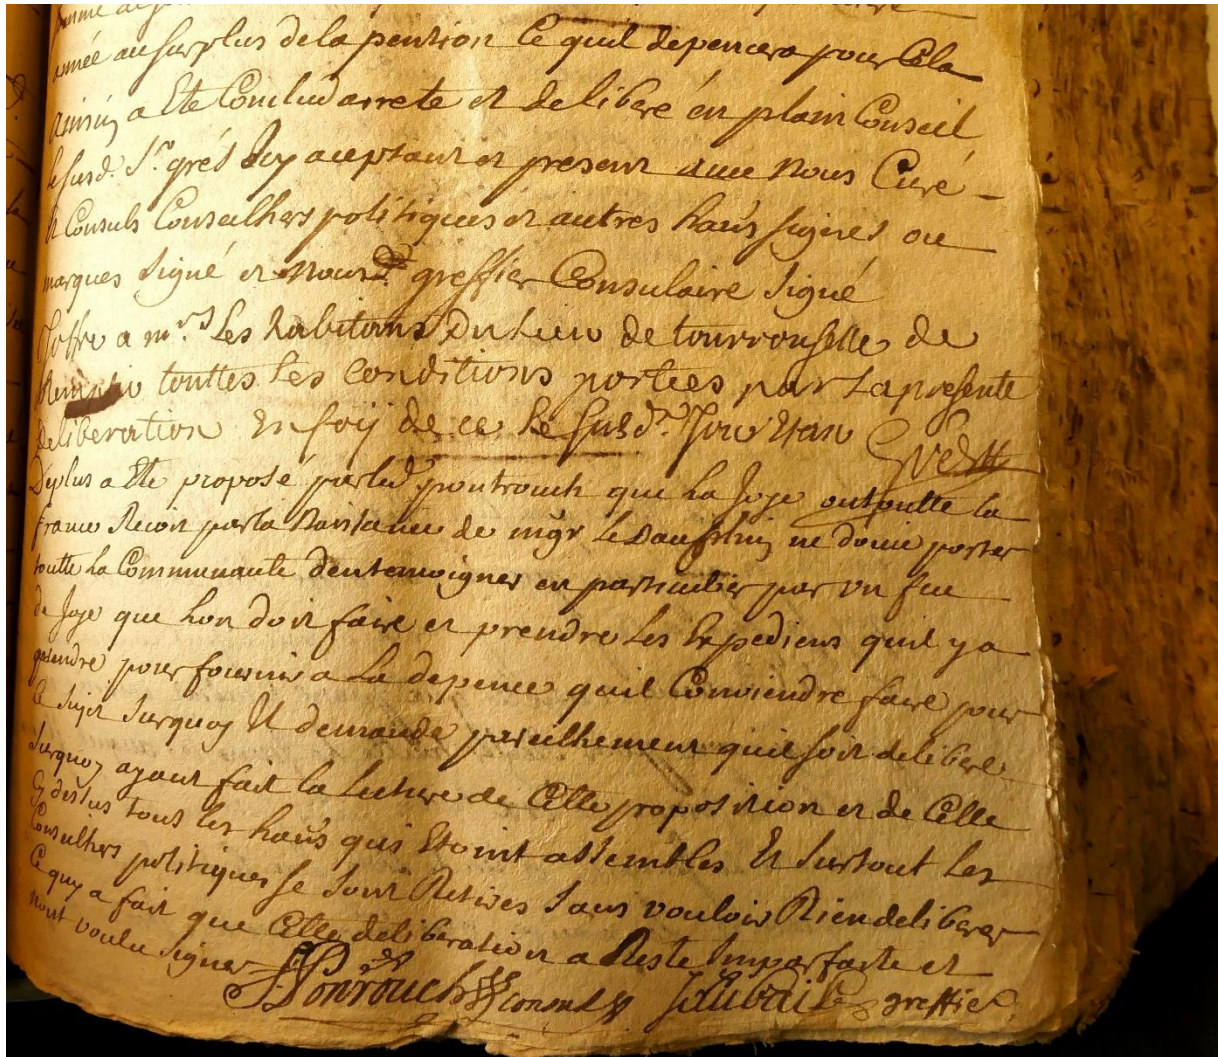 année au surplus de la pention Ce quil depencera pour Cela
ainsin a Ete Conclud arrete et delibéré en plain Conseil
le susd. Sr. grés Icy aceptant et present avec Nous Curé -
et Consuls Conseilhers politiques et autres haûs signes ou
marques signé et Nous greffier Consulaire signé
Joffre a mrs Les habitans Du Lieu de tourrouselle de
Remplir touttes Les conditions portées par La presente
deliberation En foy de ce Le susdt. Jour Et an
Deplus a Ete proposé par led pontrouch que La Joye ou toutte la
france Recoit par la Naissance de mgr Le Dauphin ne doive porter
toutte La Communaute den temoigner en particulier par un fue
de Joye que Lon doit faire et prendre Les Expediens quil y a
prendre pour fournir a La depence quil Conviendre faire pour
Ce sujet Surquoy Il demande pareilhement quil soit delibere
Surquoy ayant fait la Lecture de Cette proposition et de Celle
Cy dessus tous les haûs qui Etoint assembles Et surtout Les
Conseilhers politiques se sont Retires sans vouloir Rien deliberer
Ce quy a fait que Cette deliberation a Resté Imparfaite et
nont voulu signer
Ponrouch consul greffier